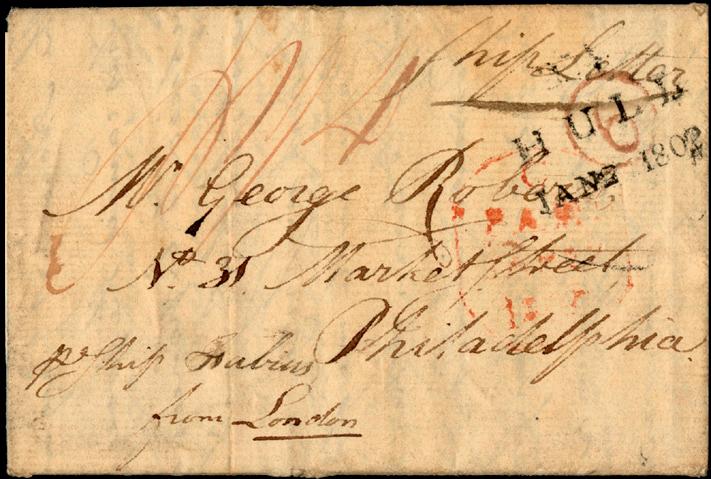 Ship Letter
6
HULL
JAN 2 1802
4
Mr. George
No. 31 Market Street
PAID
Philadelphia
pr Ship Fabius
from London